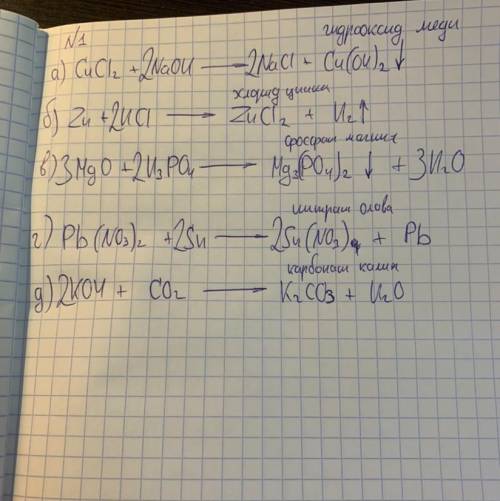 №1
гидрооксид меди
а) CuCl2 + 2NaOH → 2NaCl + Cu(OH)2 ↓
хлорид цинка
б) Zn + 2HCl → ZnCl2 + H2↑
фосфат магния
в) 3MgO + 2H3PO4 → Mg3(PO4)2 ↓ + 3H2O
нитрат олова
г) Pb(NO3)2 + 2Sn → 2Sn(NO3) + Pb
карбонат калия
д) 2KOH + CO2 → K2CO3 + H2O